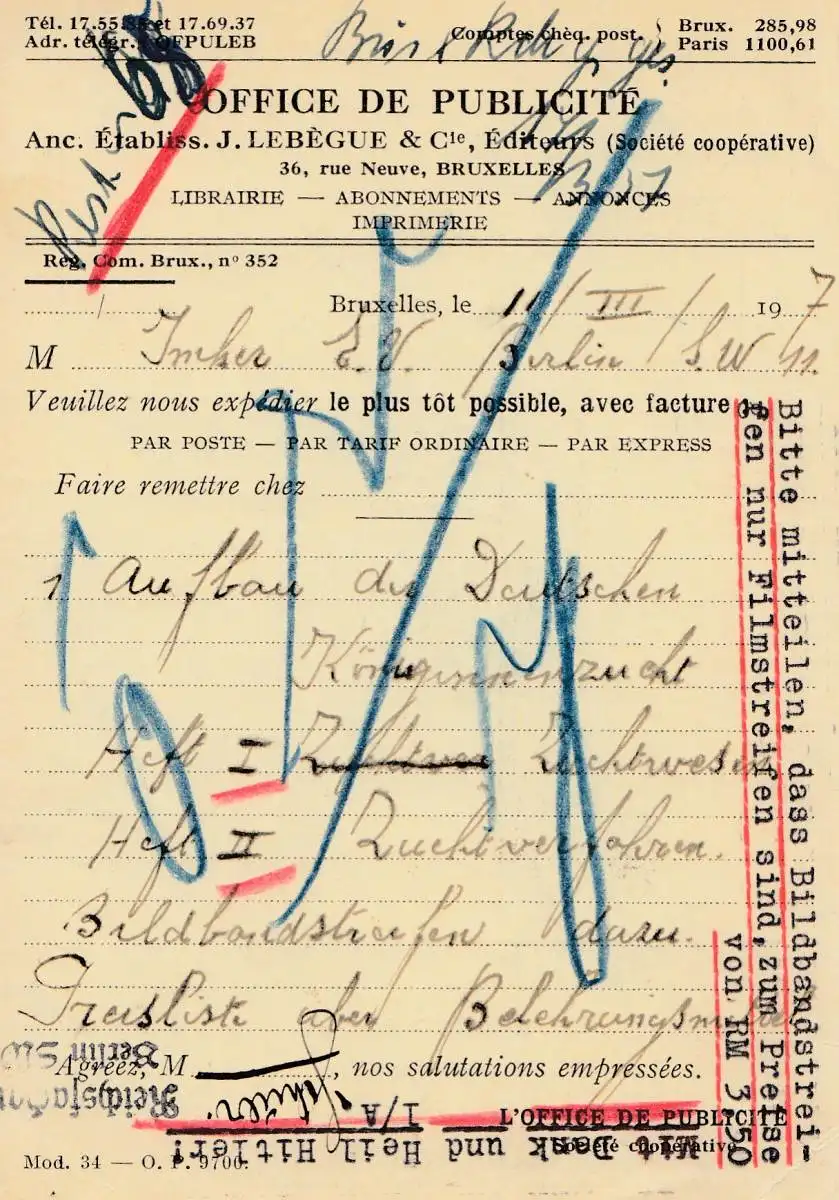 Tél. 17.55. et 17.69.37
Adr. télégr. OFPULEB
Comptes chèq. post.
Brux. 285,98
Paris 1100,61
OFFICE DE PUBLICITÉ
Anc. Établiss. J. LEBÈGUE & Cie, Éditeurs (Société coopérative)
36, rue Neuve, BRUXELLES
LIBRAIRIE — ABONNEMENTS — ANNONCES
IMPRIMERIE
Reg. Com. Brux., nº 352
Bruxelles, le 11/III/ 197
M Imker E.V. Berlin / S.W 11.
Veuillez nous expédier le plus tôt possible, avec facture
PAR POSTE — PAR TARIF ORDINAIRE — PAR EXPRESS
Faire remettre chez
1 Aufbau der Deutschen
Königinnenzucht
Heft I Zuchtwesen
Heft II Zuchtverfahren.
Bildbandstreifen dazu.
Preisliste über
Agréez, M , nos salutations empressées.
L'OFFICE DE PUBLICITÉ
Société coopérative
Mod. 34 — O. P. 9700.
Bitte mitteilen, dass Bildbandstrei-
fen nur Filmstreifen sind, zum Preise
von RM 3.50
Mit Dank und Heil Hitler!
I/A
Berlin SW